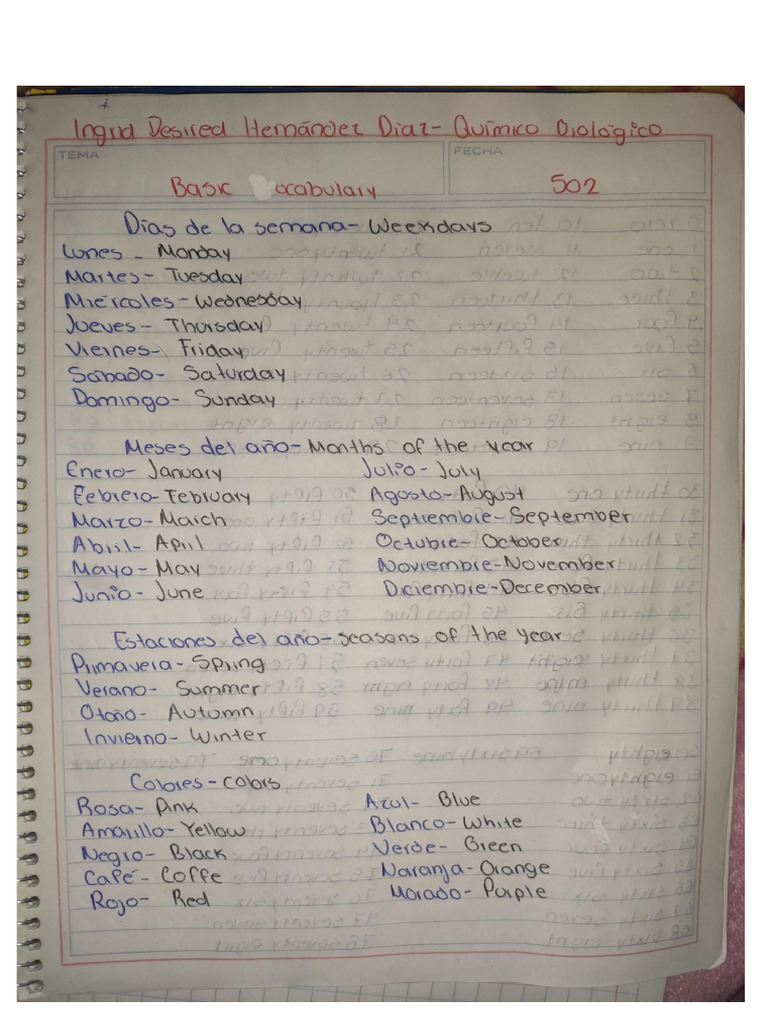 Ingrid Desired Hernández Diaz- Químico Biológico
TEMA
FECHA
Basic Vocabulary
502
Días de la semana- Weekdays
Lunes - Monday
Martes - Tuesday
Miércoles - Wednesday
Jueves - Thursday
Viernes - Friday
Sábado - Saturday
Domingo - Sunday
Meses del año- Months of the year
Enero- January Julio- July
Febrero- February Agosto- August
Marzo- March Septiembre- September
Abril- April Octubre- October
Mayo- May Noviembre- November
Junio- June Diciembre- December
Estaciones del año- seasons of the year
Primavera- Spring
Verano- Summer
Otoño- Autumn
Invierno- Winter
Colores- colors
Rosa- Pink Azul- Blue
Amarillo- Yellow Blanco- White
Negro- Black Verde- Green
Café- Coffe Naranja- Orange
Rojo- Red Morado- Purple